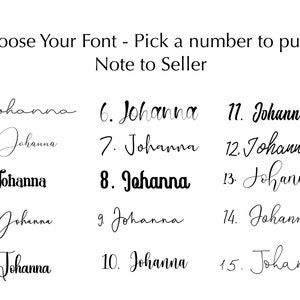 oose Your Font - Pick a number to pu
Note to Seller
Johanna 6. Johanna 11. Johann
Johanna 7. Johanna 12. Johann
Johanna 8. Johanna 13. Johann
Johanna 9. Johanna 14. Johann
Johanna 10. Johanna 15. Johan